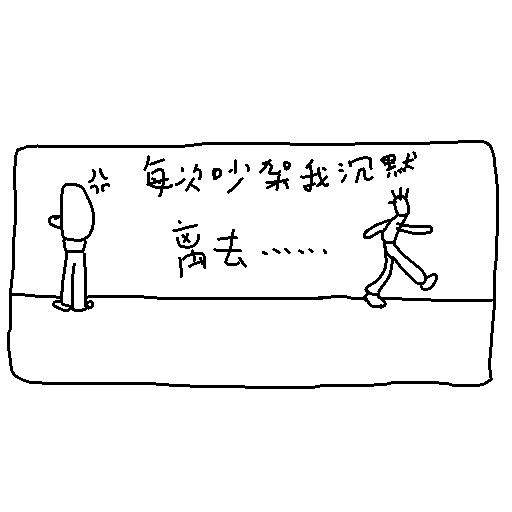 每次吵架我沉默
离去……